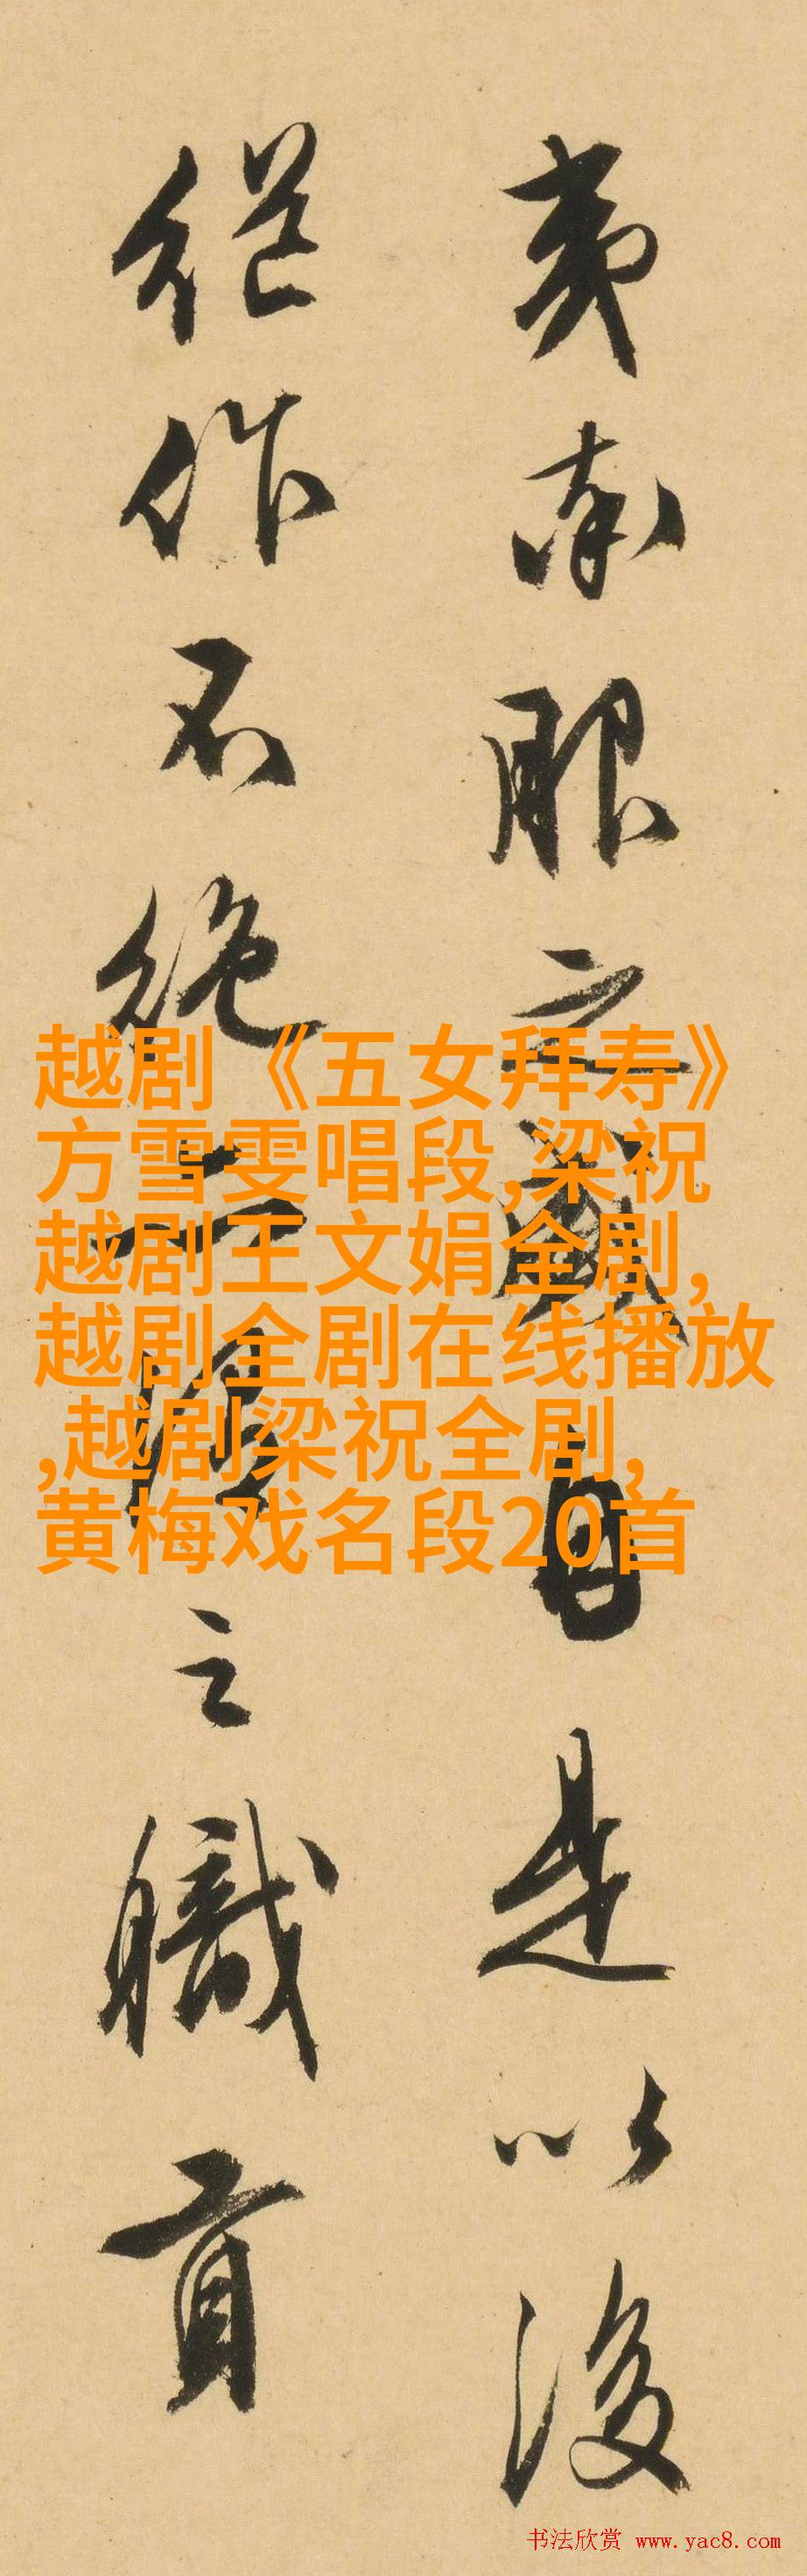 夷南服之自是以後
繼作不絕之職貢
越剧《五女拜寿》
方雪雯唱段,梁祝
越剧王文娟全剧,
越剧全剧在线播放
,越剧梁祝全剧,
黄梅戏名段20首
书法欣赏 www.yac8.com